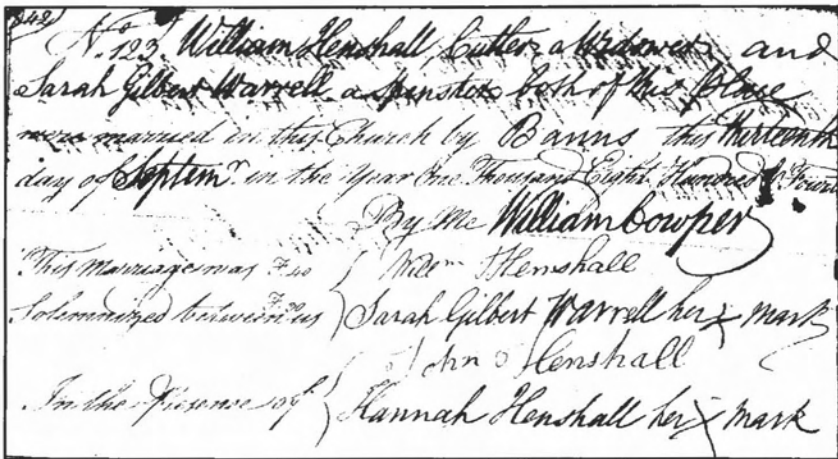 842
No. 123. William Henshall, Cutler, a Widower, and
Sarah Gilbert Warrell a Spinster both of this Place
were married in this Church by Banns this thirteenth
day of Septemr. in the Year One Thousand Eight Hundred & Four
By Me William Cowper
This Marriage was Willm Henshall
Solemnized between us Sarah Gilbert Warrell her x mark
John Henshall
In the Presence of Hannah Henshall her x mark